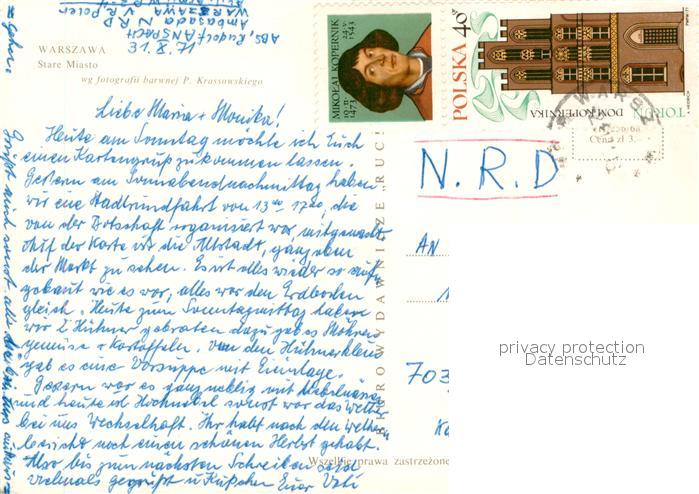 17.8.31
WARSZAWA
Stare Miasto
wg fotografii barwnej P. Krassowskiego
Liebe Maria + Monika!
Heute am Sonntag möchte ich Euch
einen Kartengruß zukommen lassen.
Gestern am Sonnabendnachmittag haben
wir eine Stadtrundfahrt von 13 00 17 00, die
von der Botschaft organisiert war mitgemacht
Auf der Karte ist die Altstadt, ganz oben
der Markt zu sehen. Es ist alles wieder so aufge
baut wie es war, alles war dem Erdboden
gleich. Heute zum Sonntagmittag haben
wir 2 Hühner gebraten dazu gab es Möhren
gemüse + Kartoffeln. Von den Hühnerklein
gab es eine Vorsuppe mit Einlage.
Gestern war es ganz neblig mit Nebelnässen
und heute ist Hochnebel sonst war das Wetter
bei uns Wechselhaft. Ihr habt nach den Wetter
bericht noch einen schönen Herbst gehabt.
Also bis zum nächsten Schreiben seid
vielmals gegrüßt u. Küßchen Euer
ABS. Rudolf
Ambasada N.R.D
WARSZAWA
BIURO WYDAWNICZE „RUCH"
MIKOŁAJ KOPERNIK
19.II. 1473
24.V. 1543
POLSKA 40 gr
TORUŃ
DOM KOPERNIKA
Cena zł 3,
N.R.D
AN
703
Wszelkie prawa zastrzeżone
privacy protection
Datenschutz